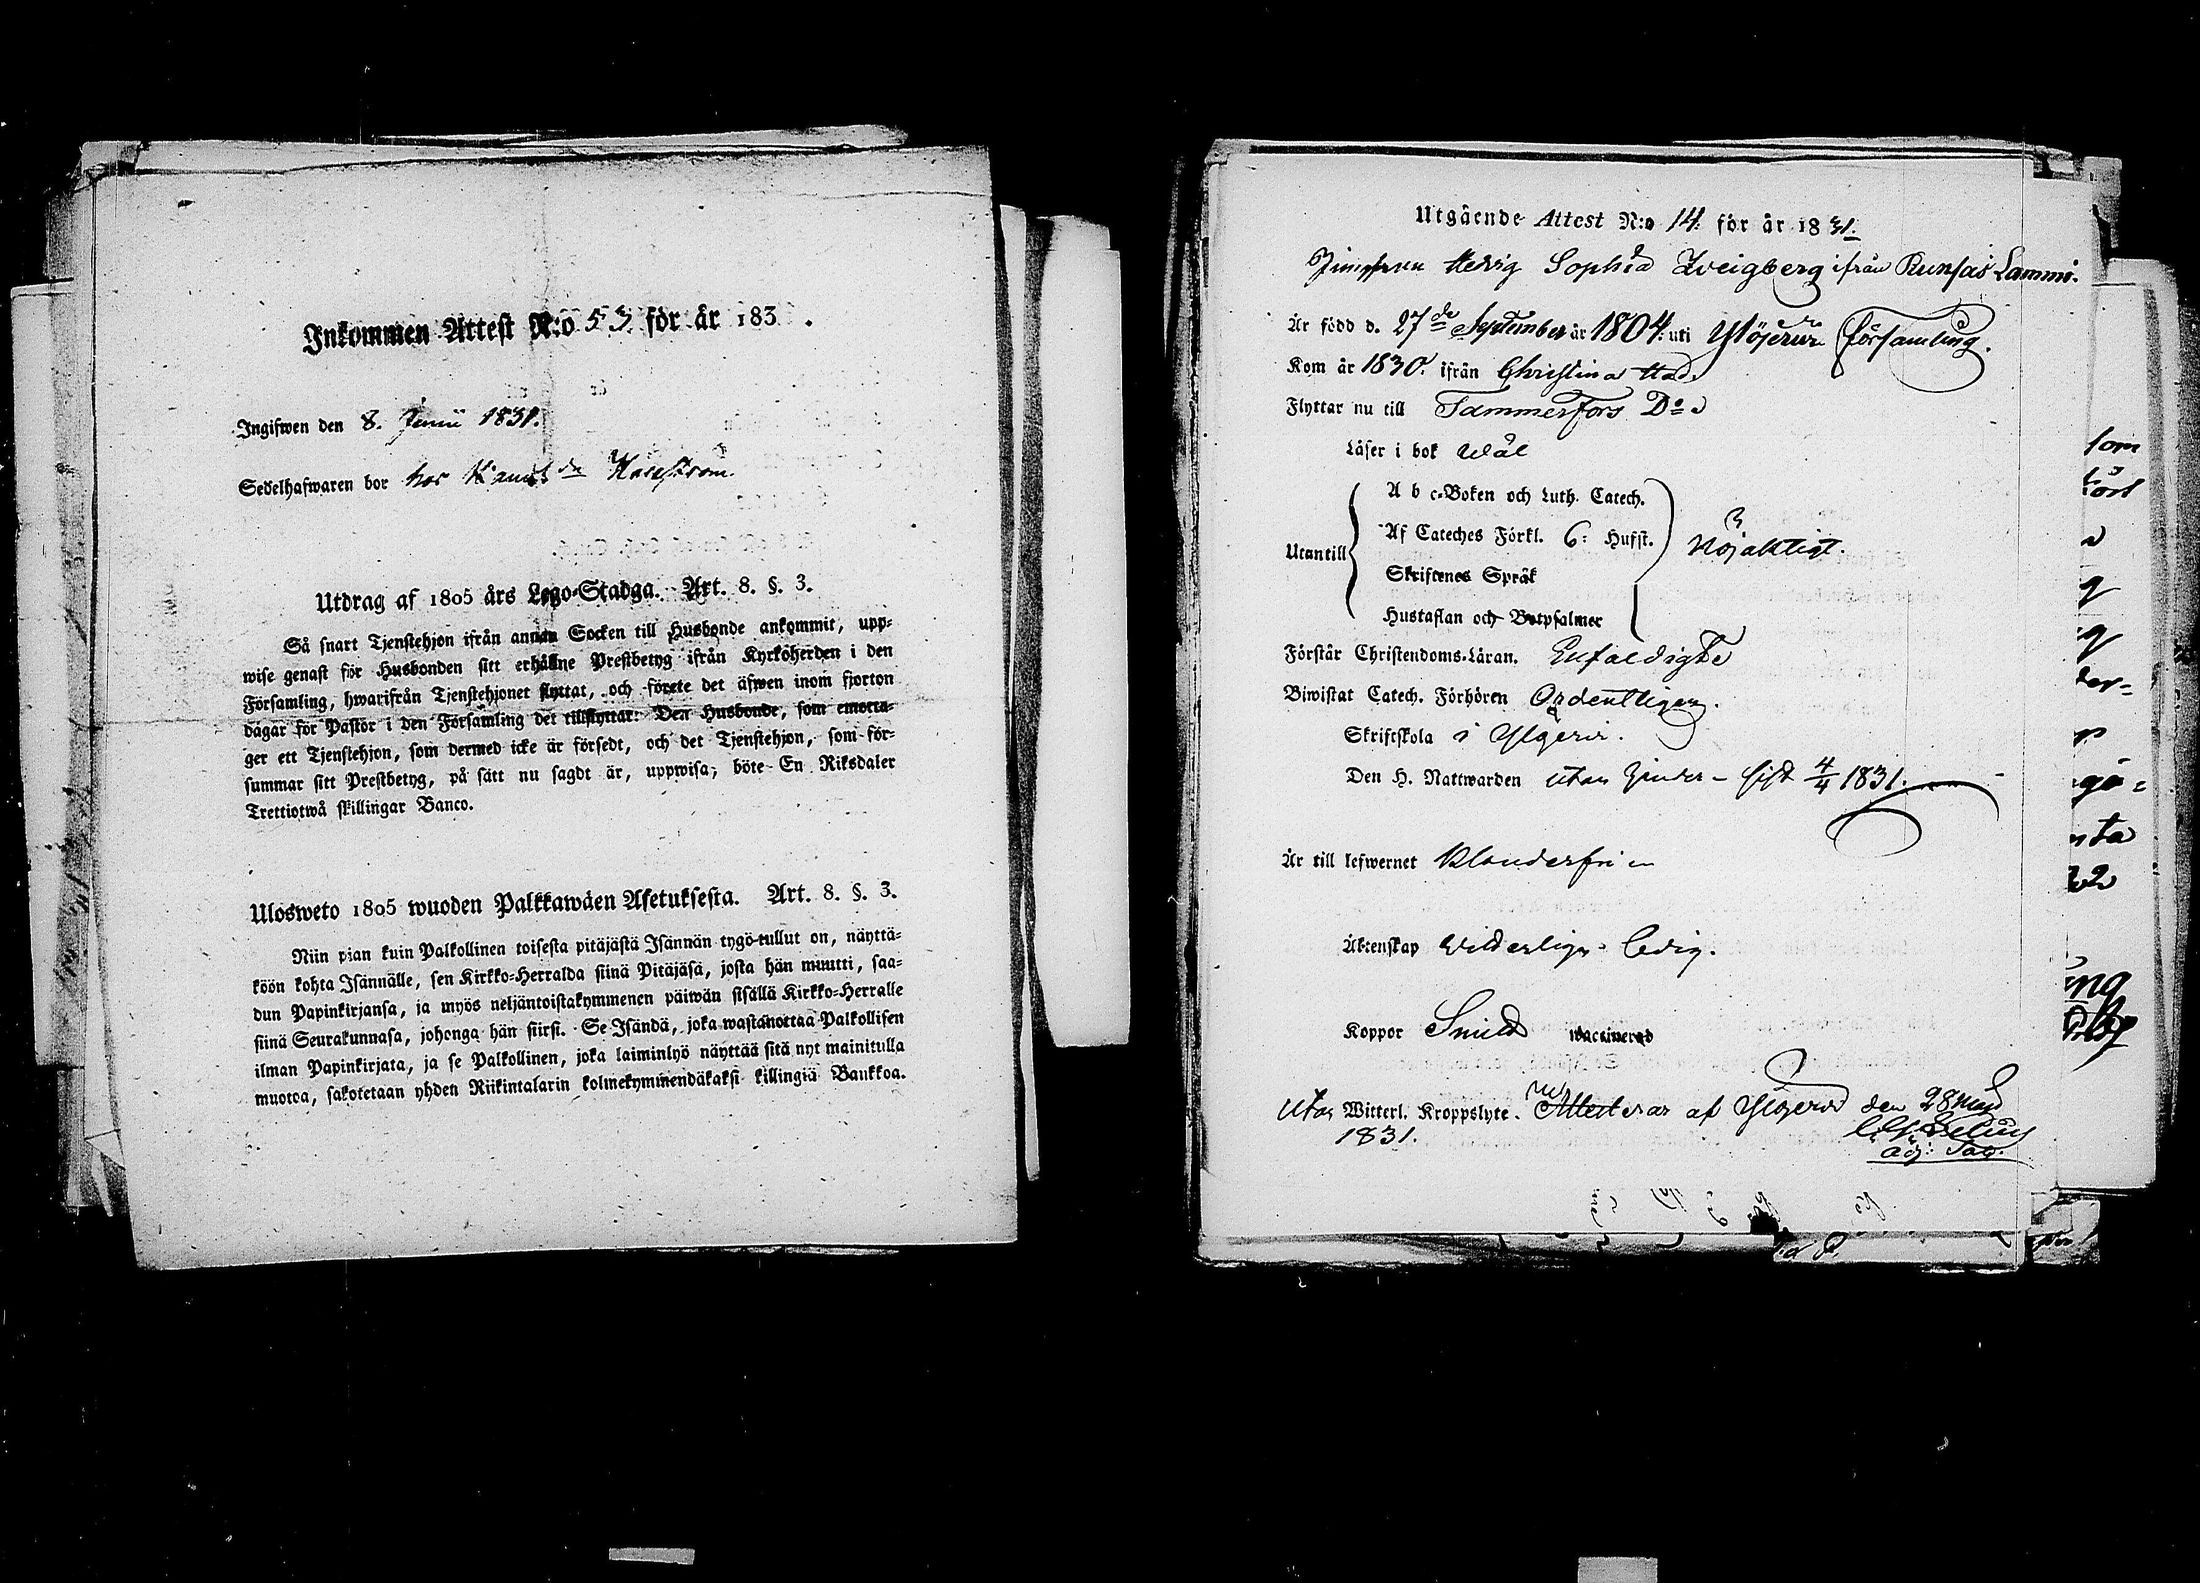 Inkommen Attest N:o 53 för år 183 .
Ingifwen den 8. Junii 1831.
Sedelhafwaren bor hos
Utdrag af 1805 års Lego-Stadga. Art. 8. §. 3.
Så snart Tjenstehjon ifrån annan Socken till Husbonde ankommit, upp-
wise genast för Husbonden sitt erhållne Prestbetyg ifrån Kyrkoherden i den
Församling, hwarifrån Tjenstehjonet flyttat, och förete det äfwen inom fjorton
dagar för Pastor i den Församling det tillflyttar: Den Husbonde, som emotta-
ger ett Tjenstehjon, som dermed icke är försedt, och det Tjenstehjon, som för-
summar sitt Prestbetyg, på sätt nu sagdt är, uppwisa, böte En Riksdaler
Trettiotwå skillingar Banco.
Ulosweto 1805 wuoden Palkkawäen Asetuksesta. Art. 8. §. 3.
Niin pian kuin Palkollinen toisesta pitäjästä Isännän tygö tullut on, näyttä-
köön kohta Isännälle, sen Kirkko-Herralda siinä Pitäjäsä, josta hän muutti, saa-
dun Papinkirjansa, ja myös neljäntoistakymmenen päiwän sisällä Kirkko-Herralle
siinä Seurakunnasa, johonga hän siirsi. Se Isändä, joka wastanottaa Palkollisen
ilman Papinkirjata, ja se Palkollinen, joka laiminlyö näyttää sitä nyt mainitulla
muotoa, sakotetaan yhden Riikintalarin kolmekymmendäkaksi killingiä Bankkoa.
Utgående Attest N:o 14. för år 1831.
Jungfrun Hedvig Sophia Zweigberg ifrån Runsas Lammi.
Är född d. 27de September år 1804. uti Ylöjervi Församling.
Kom år 1830. ifrån Christina stad.
Flyttar nu till Tammerfors Do
Läser i bok wäl
A b c-Boken och Luth. Catech.
Af Cateches Förkl. 6: Hufst.
Utantill nöjaktigt.
Skriftenes Språk
Hustaflan och Botpsalmer
Förstår Christendoms-Läran. Enfaldigt
Biwistat Catech. Förhören Ordentligen.
Skriftskola i Ylöjervi.
Den H. Nattwarden utan hinder – sist 4/4 1831.
Är till lefwernet klanderfri
Äktenskap witterligen ledig.
Koppor waccinerad
Utan Witterl. Kroppslyte. Attesterar af Ylöjervi den 28 Maji
1831.
Adj: Sac.